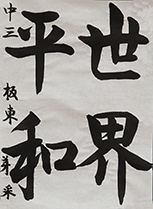 世界
平和
中三 板東芽采